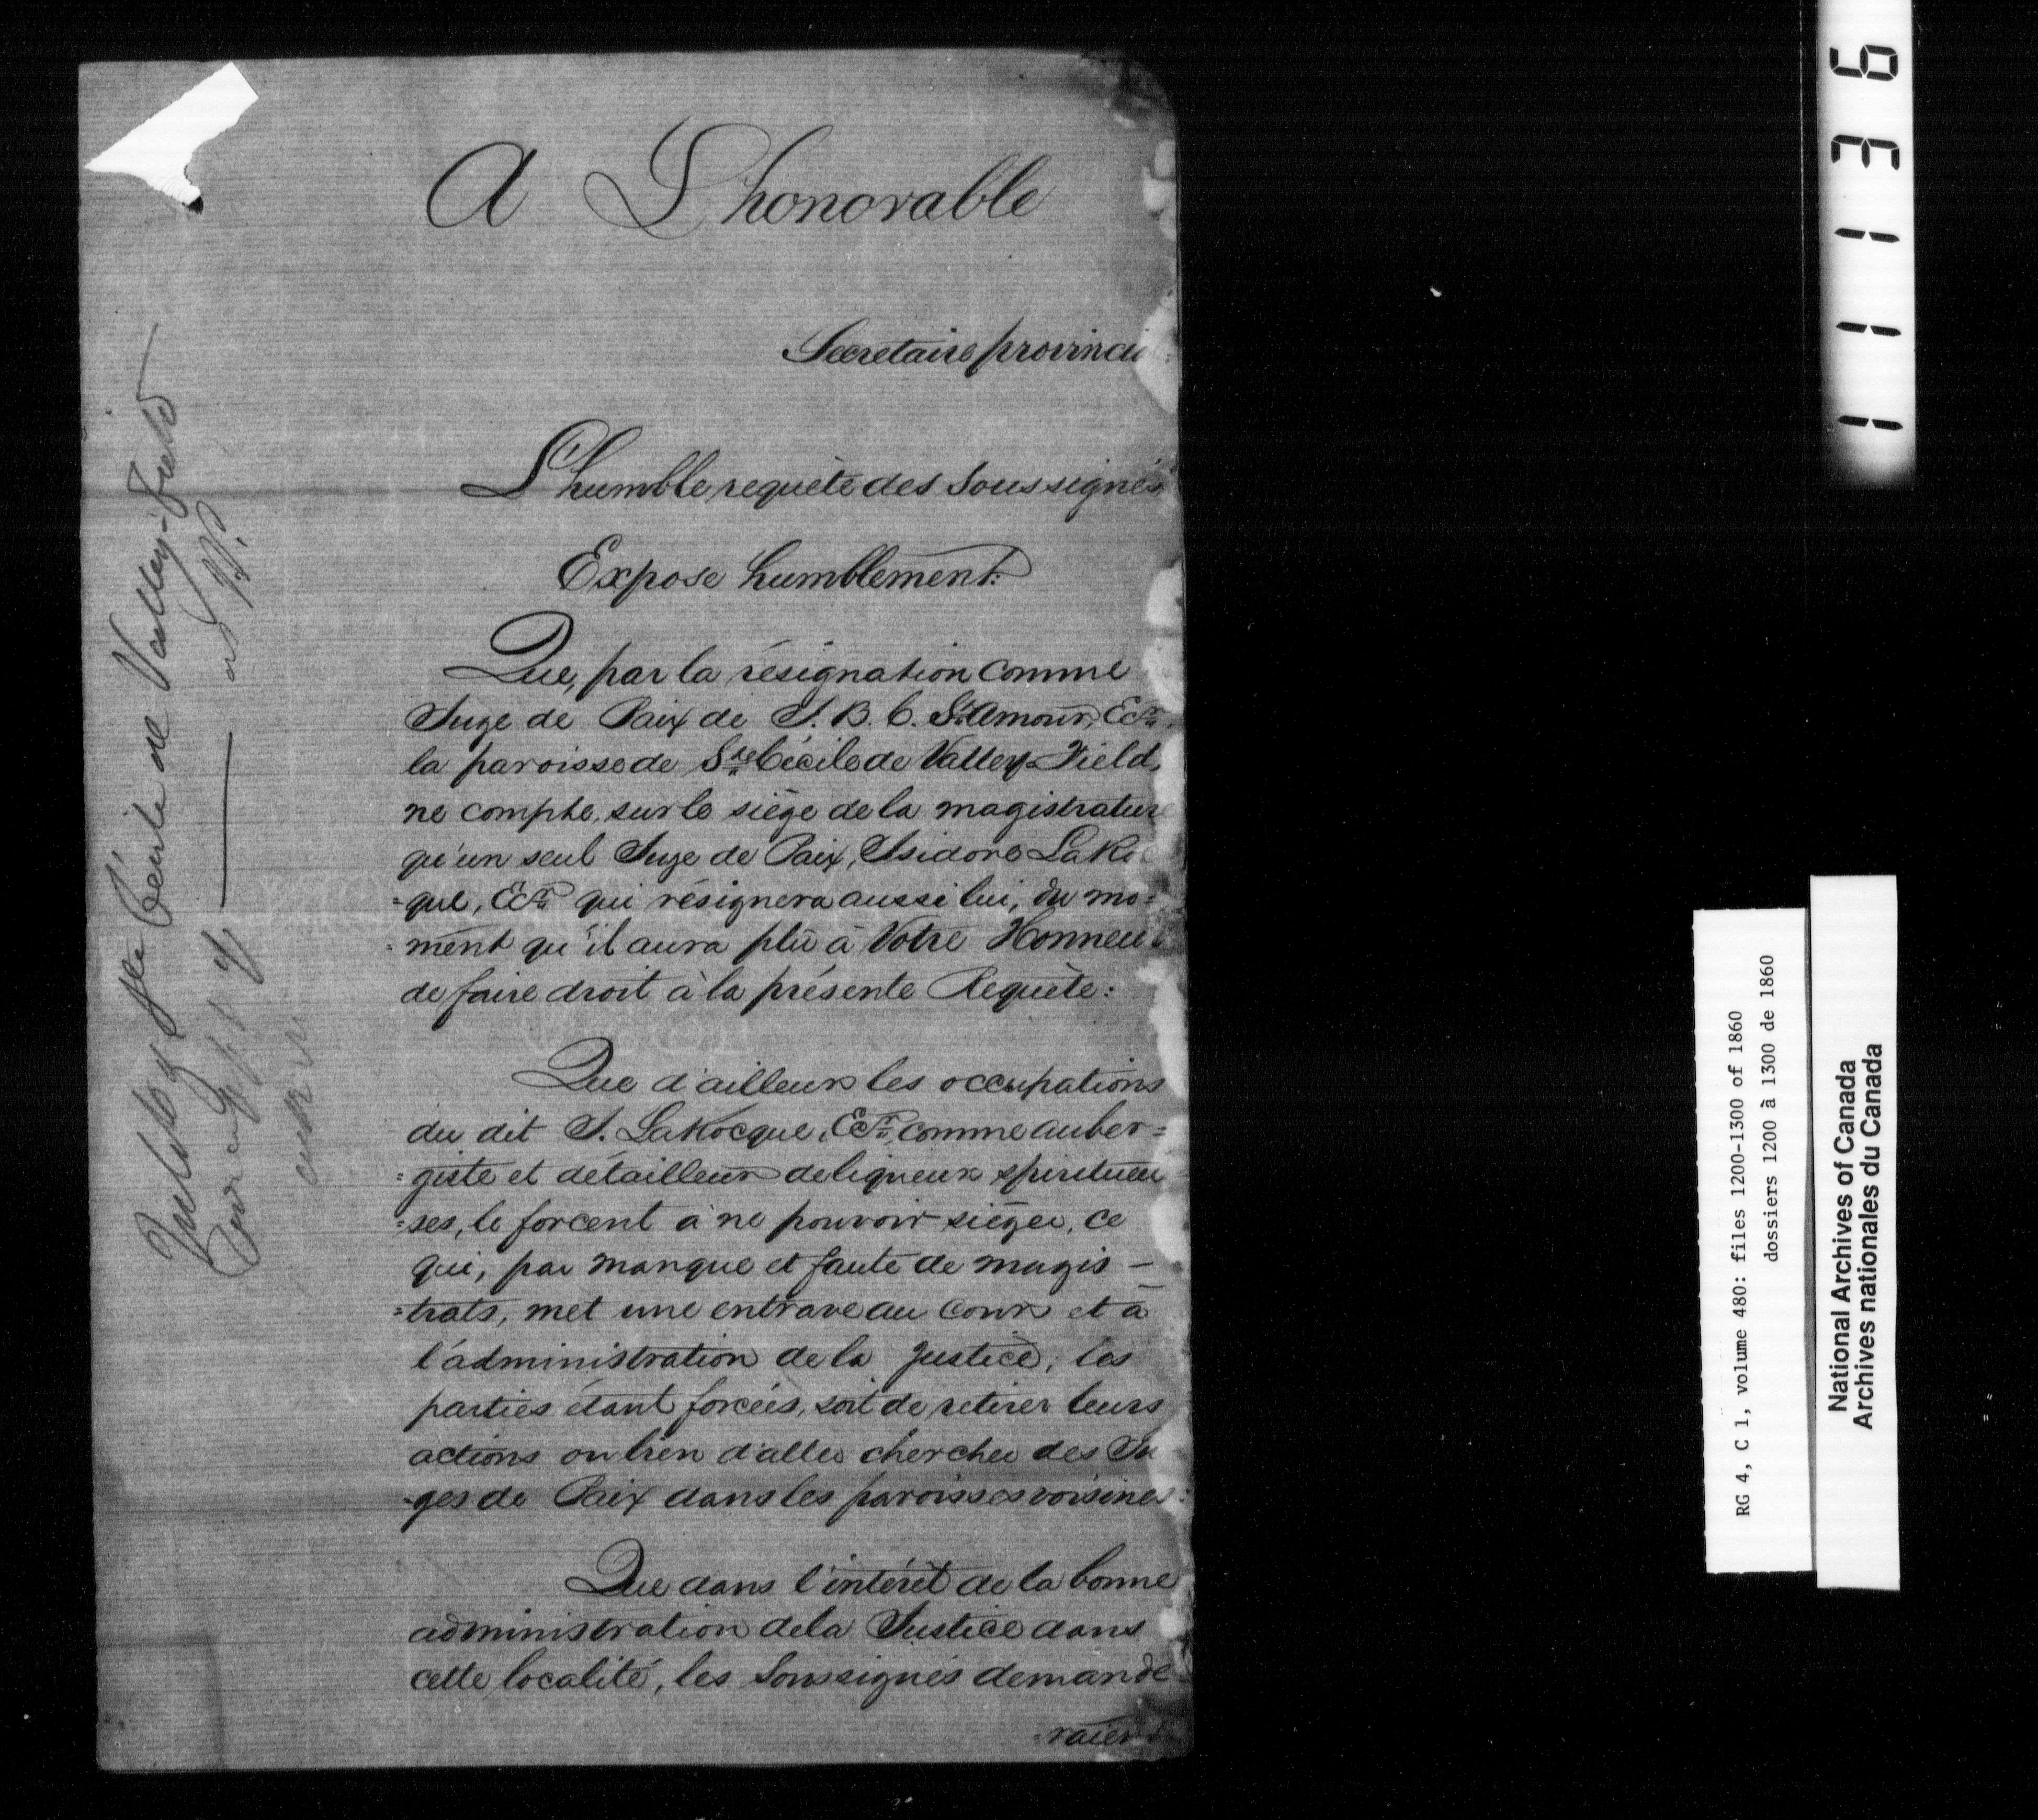 A L'honorable
Secretaire provincial
L'humble requète des Soussignés
Expose humblement:
Que, par la résignation comme
Juge de Paix de J. B. C. St Amour, Ecr.
la paroisse de Ste Cécile de Valley-Field,
ne compte, sur le siège de la magistrature
qu'un seul Juge de Paix, Isidore LaRoc
=que, Ecr. qui résignera aussi lui, du mo=
=ment qu'il aura plû à Votre Honneur
de faire droit à la présente Requète:
Que d'ailleurs les occupations
du dit I. LaRocque, Ecr. comme auber=
=giste et détailleur de liqueurs spiritueu
=ses, le forcent à ne pouvoir siéger, ce
qui, par manque et faute de magis-
=trats, met une entrave au cours et à
l'administration de la Justice; les
parties étant forcées, soit de retirer leurs
actions ou bien d'aller chercher des Ju
-ges de Paix dans les paroisses voisines:
Que dans l'intérêt de la bonne
administration de la Justice dans
cette localité, les Soussignés demande
-raient
Inhts of Ste Cécile de Valley-Field
111136
RG 4, C 1, volume 480: files 1200-1300 of 1860
dossiers 1200 à 1300 de 1860
National Archives of Canada
Archives nationales du Canada